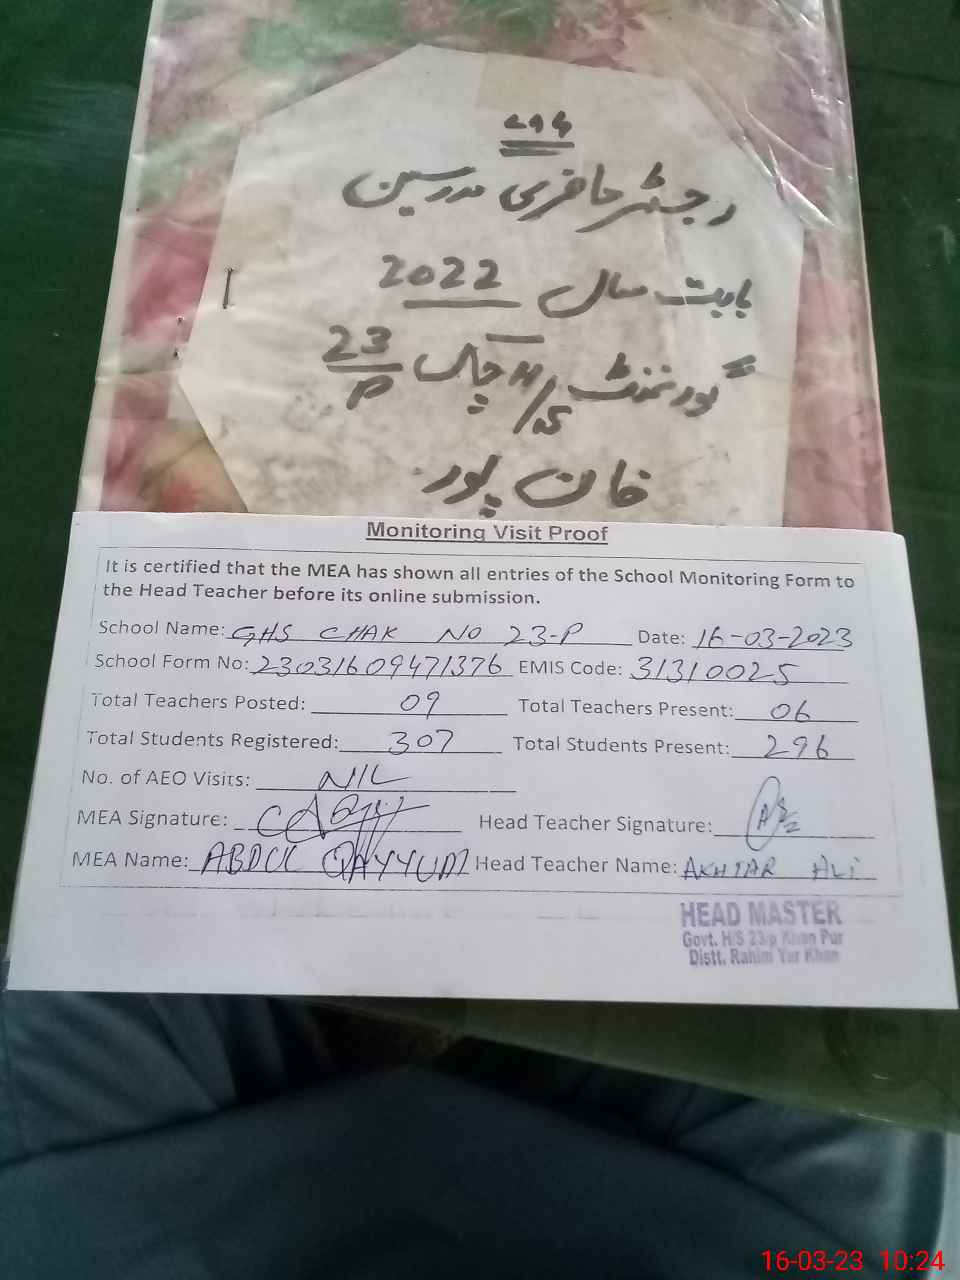 ۷۸۶
رجسٹر حاضری مدرسین
بابت سال 2022
گورنمنٹ H/S چک 23/P
خان پور
Monitoring Visit Proof
It is certified that the MEA has shown all entries of the School Monitoring Form to
the Head Teacher before its online submission.
School Name: GHS CHAK NO 23-P Date: 16-03-2023
School Form No: 23031609471376 EMIS Code: 31310025
Total Teachers Posted: 09 Total Teachers Present: 06
Total Students Registered: 307 Total Students Present: 296
No. of AEO Visits: NIL
MEA Signature: Head Teacher Signature:
MEA Name: ABDUL QAYYUM Head Teacher Name: AKHTAR ALI
HEAD MASTER
Govt. H/S 23/p Khan Pur
Distt. Rahim Yar Khan
16-03-23 10:24